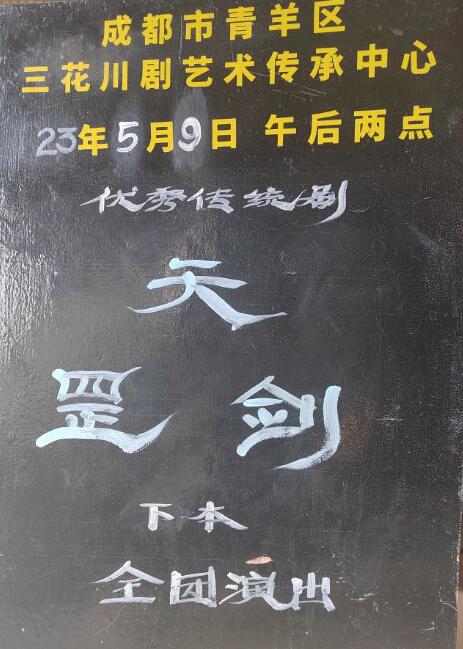 成都市青羊区
三花川剧艺术传承中心
23年5月9日 午后两点
优秀传统剧
天
罡 剑
下本
全团演出